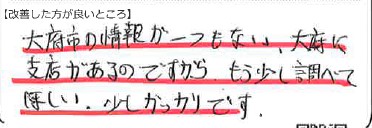 【改善した方が良いところ】
大府市の情報が一つもない、大府に
支店があるのですから、もう少し調べて
ほしい。少しガッカリです。